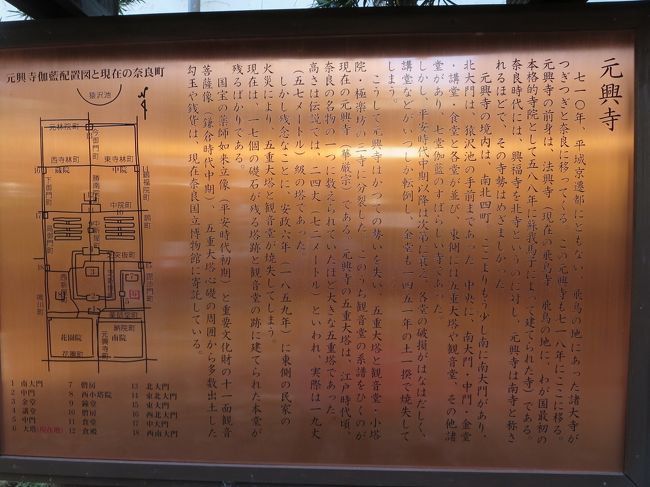 元興寺
七一〇年、平城京遷都にともない、飛鳥の地にあった諸大寺が
つぎつぎと奈良に移ってくる。この元興寺も七一八年にここに移る。
元興寺の前身は、法興寺（現在の飛鳥寺）。飛鳥の地に、わが国最初の
本格的寺院として五八八年に蘇我馬子によって建てられた寺）である。
奈良時代には、興福寺を北寺というのに対し、元興寺は南寺と称さ
れるほどで、その寺勢はめざましかった。
元興寺の境内は、南北四町、ここよりもう少し南に南大門があり、
北大門は、猿沢池の手前まであった。中央に、南大門・中門・金堂
・講堂・食堂と各堂が並び、東側には五重大塔や観音堂、その他諸
堂があり、七堂伽藍のすばらしい寺であった。
しかし、平安時代中期以降は次第に衰え、各堂の破損がはなはだしく、
講堂などが、いつしか転倒し、金堂も一四五一年の土一揆で焼失して
しまう。
こうして元興寺はかつての勢いを失い、五重大塔と観音堂・小塔
院・極楽坊の三寺に分裂した。このうち観音堂の系譜をひくのが
現在の元興寺（華厳宗）である。元興寺の五重大塔は、江戸時代頃、
奈良の名物の一つに数えられていたほど大きな五重塔であった。
高さは伝説では、二四丈（七二メートル）といわれ、実際は一九丈
（五七メートル）級の塔であった。
しかし残念なことに、安政六年（一八五九年）に東側の民家の
火災により、五重大塔と観音堂が焼失してしまう。
現在は、一七個の礎石が残る塔跡と観音堂の跡に建てられた本堂が
残るばかりである。
国宝の薬師如来立像（平安時代初期）と重要文化財の十一面観音
菩薩像（鎌倉時代中期）、五重大塔心礎の周囲から多数出土した
勾玉や銭貨は、現在奈良国立博物館に寄託している。
元興寺伽藍配置図と現在の奈良町
猿沢池
元林院町
今御門町
西寺林町
東寺林町
鶴福院町
下御門町
勝南院
中院町
鵲町
芝突抜町
西新屋町
毘沙門町
納院町
北園院
南院
元興寺町
花園町
1 南大門
2 中門
3 金堂
4 講堂
5 中門
6 大塔(現在地)
7 僧房
8 西小塔院
9 鐘堂
10 僧房
11 食堂
12 食殿
13 北大門
14 東北大門
15 東大門
16 西北大門
17 中西大門
18 西南大門